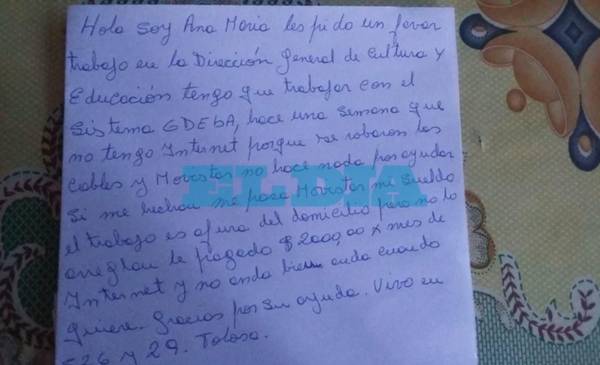 Hola soy Ana Maria les pido un favor
trabajo en la Dirección general de Cultura y
Educación tengo que trabajar con el
sistema GDEbA, hace una semana que
no tengo Internet porque se robaron los
Cables y Movistar no hace nada por ayudar
EL DIA
Si me hechan me paga Movistar mi sueldo
el trabajo es afura del domicilio pero no lo
arreglan le pagado $2000,00 x mes de
Internet y no anda bien anda cuando
quiere. Gracias por su ayuda. Vivo en
526 y 29. Tolosa.